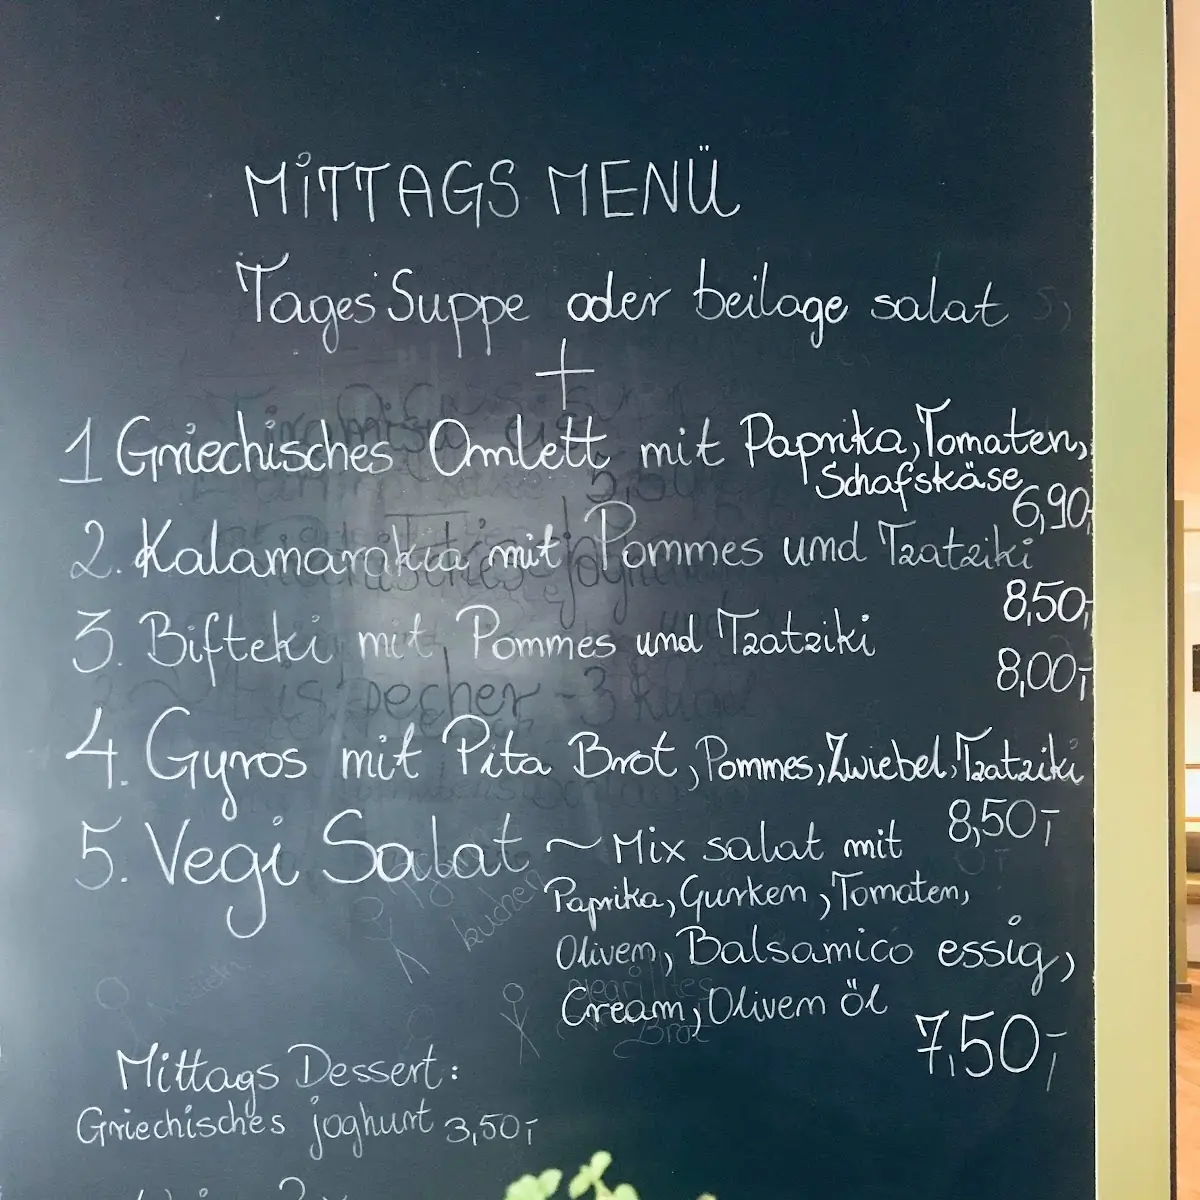 MiTTAGS MENÜ
Tages Suppe oder beilage salat
+
1 Griechisches Omlett mit Paprika, Tomaten,
Schafskäse
6,90,-
2. Kalamarakia mit Pommes und Tzatziki
8,50,-
3. Bifteki mit Pommes und Tzatziki
8,00,-
4. Gyros mit Pita Brot, Pommes, Zwiebel, Tzatziki
8,50,-
5. Vegi Salat ~ Mix salat mit
Paprika, Gurken, Tomaten,
Oliven, Balsamico essig,
Cream, Oliven öl
7,50,-
Mittags Dessert:
Griechisches joghurt 3,50,-